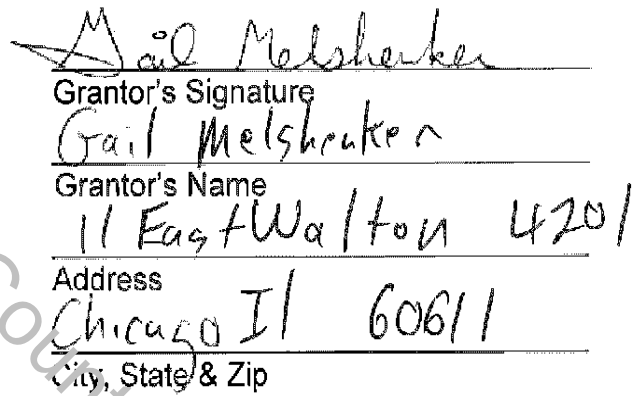 Gail Melshenker
Grantor's Signature
Gail Melshenker
Grantor's Name
11 East Walton 4201
Address
Chicago Il 60611
City, State & Zip